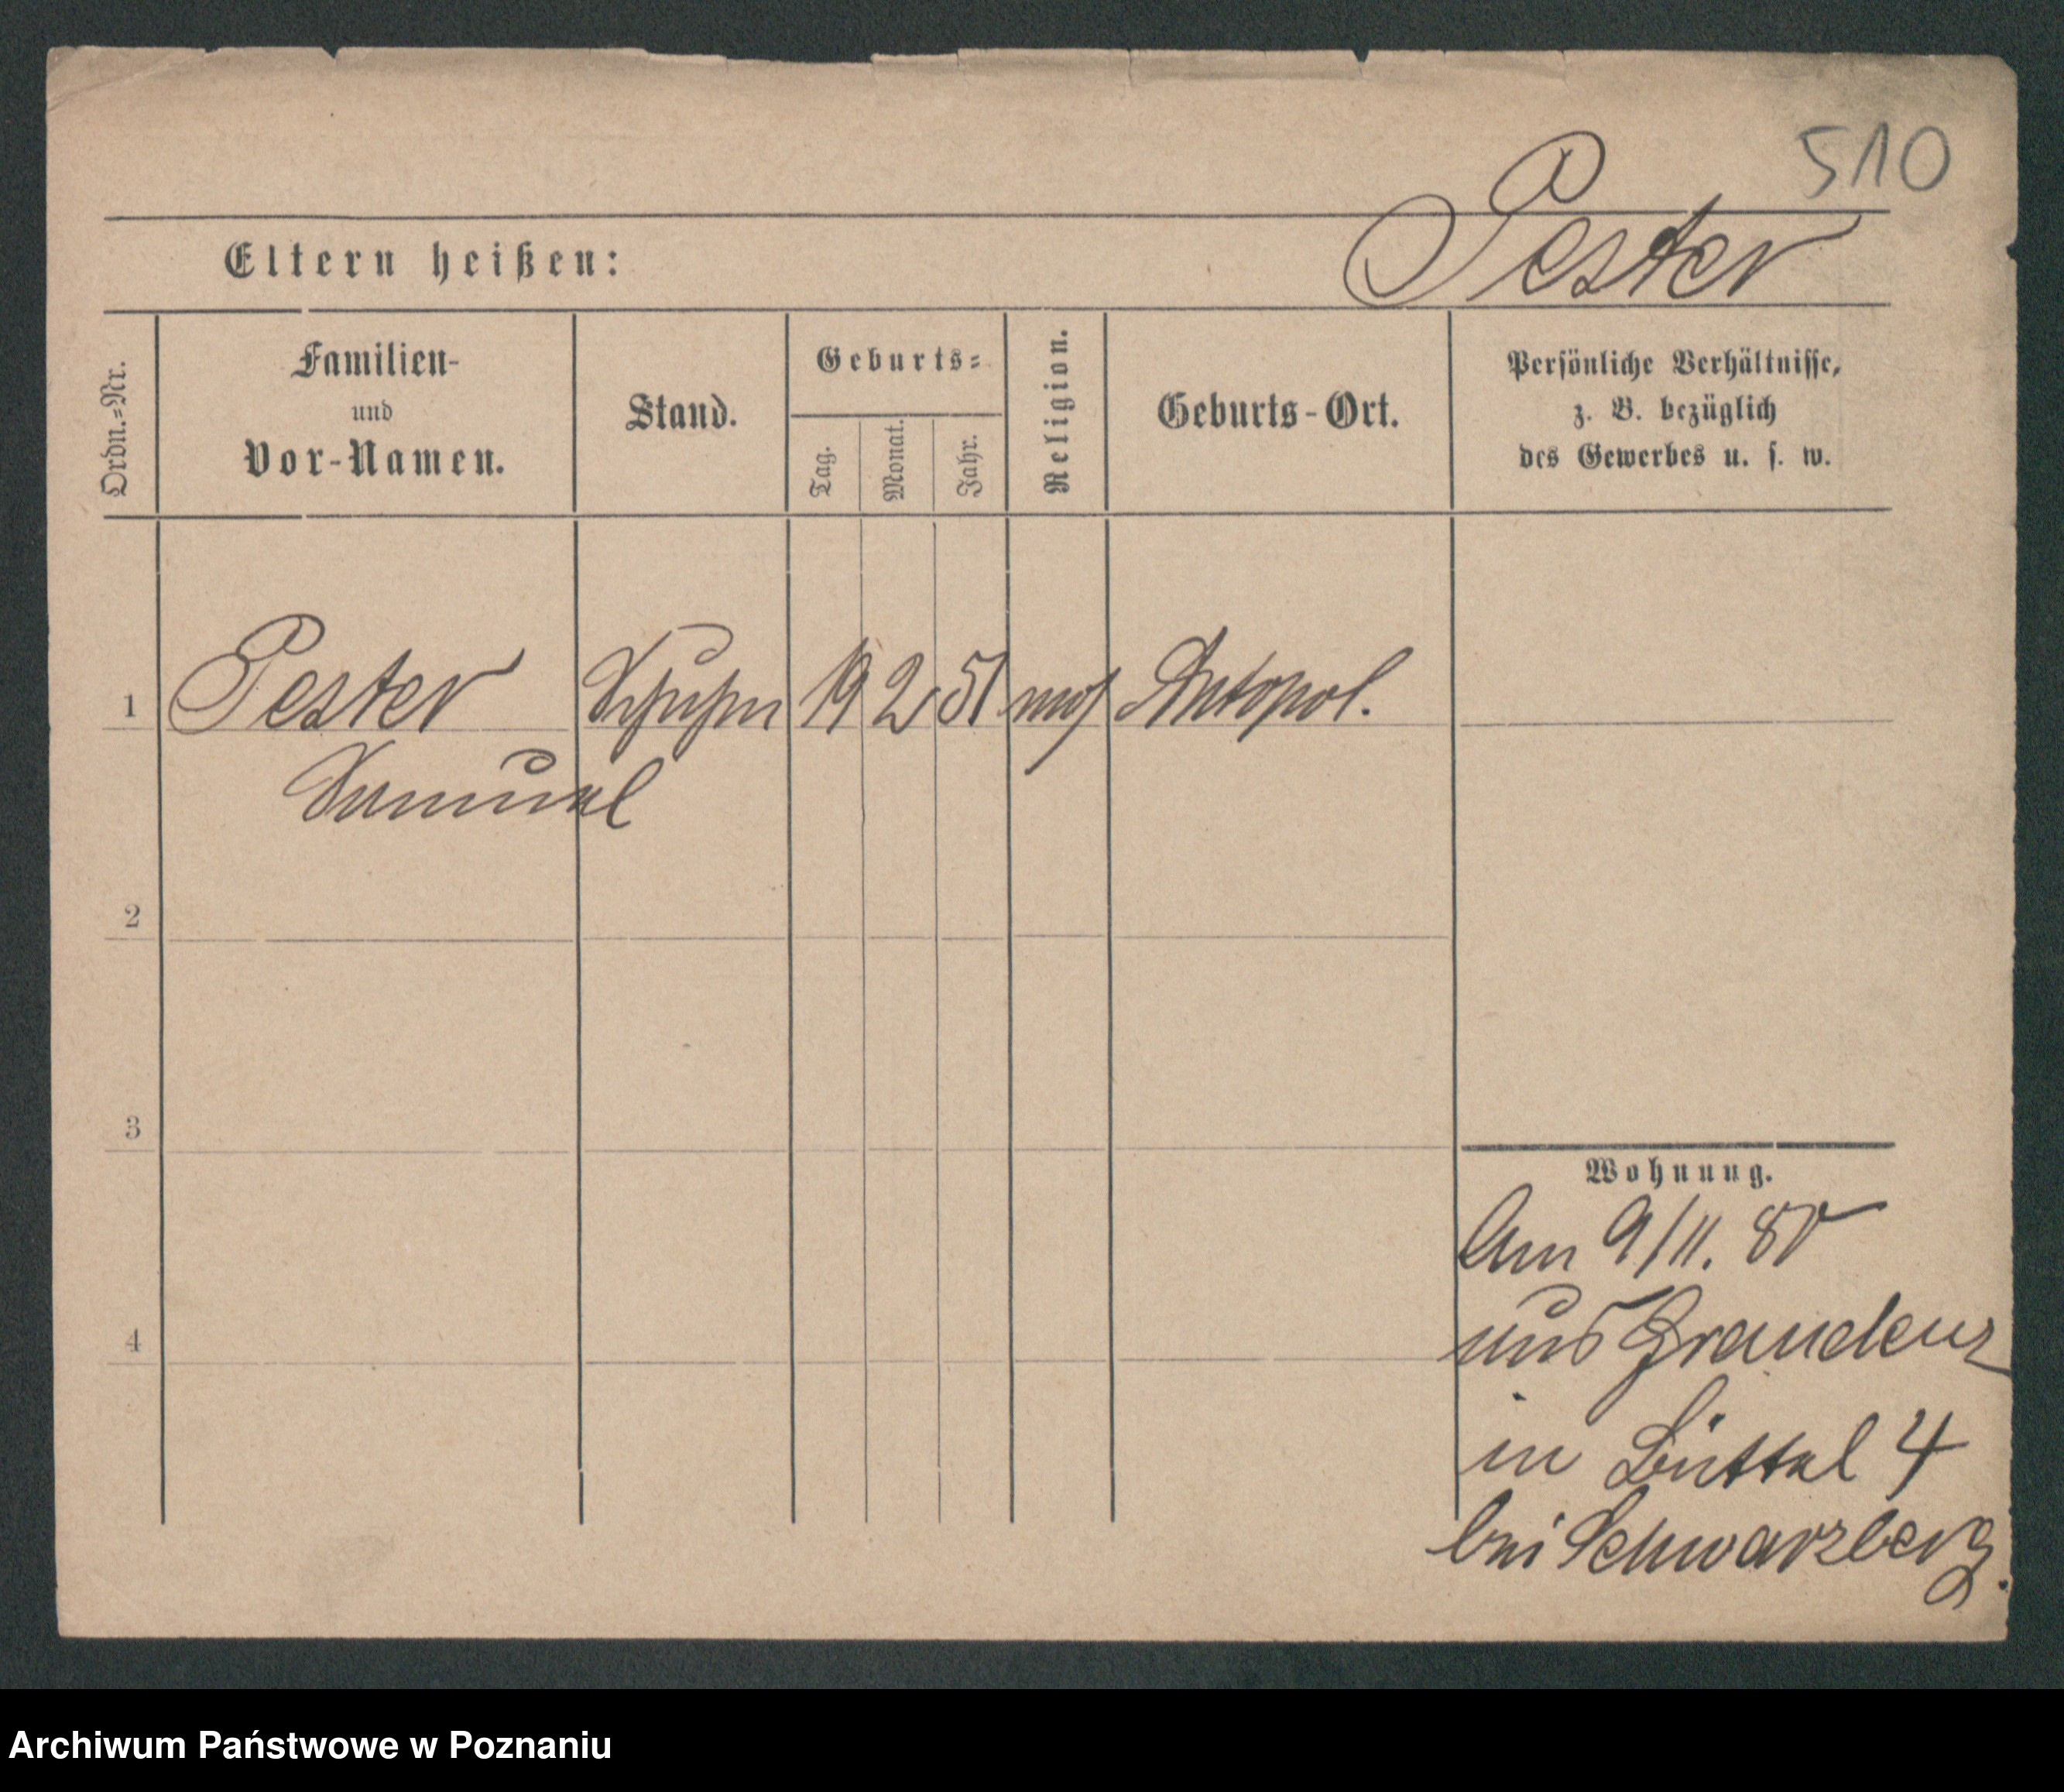 510
Pester
Eltern heißen:
Ordn.=Nr.
Familien-
und
Vor-Namen.
Stand.
Geburts=
Tag.
Monat.
Jahr.
Religion.
Geburts-Ort.
Persönliche Verhältnisse,
z. B. bezüglich
des Gewerbes u. s. w.
1 Pester 19 2 51 mos Antopol.
Samuel
2
3
4
Wohnung.
Am 9/11. 80
aus Graudenz
in Büttel 4
bei Schwarzberg.
Archiwum Państwowe w Poznaniu